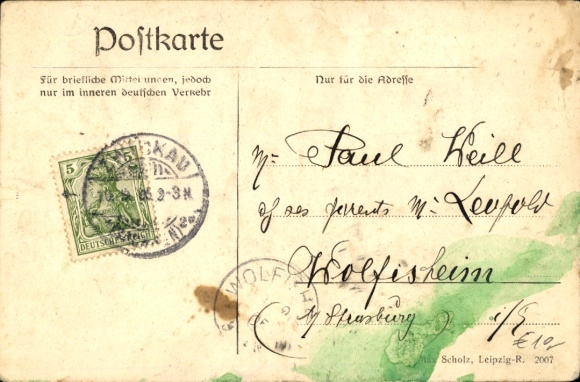 Postkarte
Für briefliche Mitteilungen, jedoch
nur im inneren deutschen Verkehr
Nur für die Adresse
5 5
DEUTSCHES REICH
ZWICKAU
2-3N
Mr Paul Weill
chez ses parents Mr Leopold
Wolfisheim
(b/ Strasburg) i/E
WOLFISH
€ 12
Max Scholz, Leipzig-R. 2007